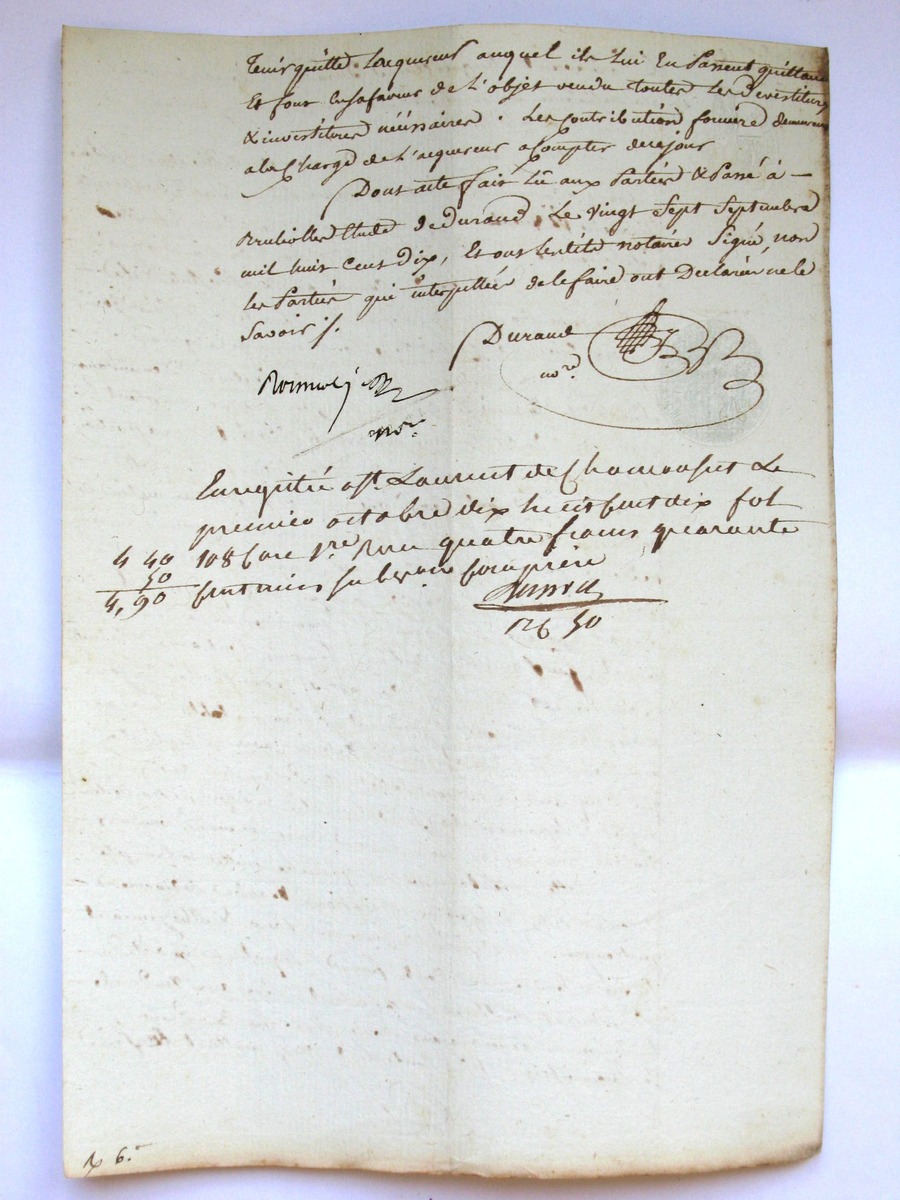 Tenir quitte Lacquereur auquel ils Lui En Passent quittance
Et font En sa faveur de L'objet vendu toutes Les Devestitures
& investitures nécessaires. Les Contribution foncière demeurent
a la Charge de L'acquereur a Compter de ce jour
Dont acte fait Lû aux Parties & Passé à —
Etude de Durand, Le vingt Sept Septembre
mil huit Cent dix, Et ont Lesdits notaires Signé, non
Les Parties qui interpellées de le faire ont Declarées ne le
Savoir /.
Durand
nore.
nore.
Enregistré a St. Laurent de Chamousset Le
premier octobre dix huit Cent dix fol
108 Case 1re Reçu quatre francs quarante
Centimes Subvention Comprise
4 40
50
4,90
126 50
6.